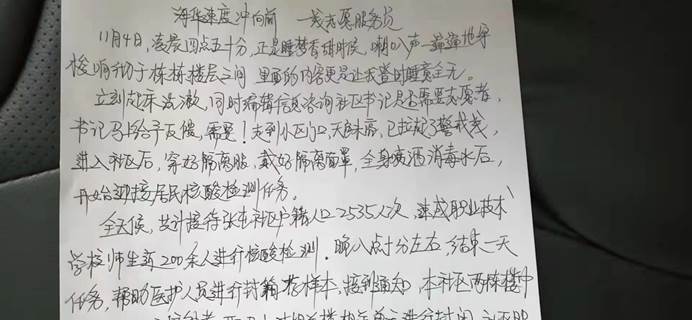 海华速度冲向前 一线志愿服务员
11月4日,凌晨四点五十分,正是睡梦香甜时候,喇叭声一遍遍地
响彻于栋栋楼层之间,里面的内容更是让我登时睡意全无。
立刻起床洗漱,同时编辑信息咨询社区书记是否需要志愿者,
书记马上给予反馈,需要!走到小区门口,天色未亮,已拉起了警戒线,
进入社区后,穿好隔离服,戴好隔离面罩,全身喷洒消毒水后,
开始迎接居民核酸检测任务。
全天候,共计接待张庄社区户籍人口2535人次,速成职业技术
学校师生近200余人进行核酸检测,晚八点十分左右,结束一天
任务,帮助医护人员进行封箱 样本,接到通知,本社区两栋楼中
进行封闭